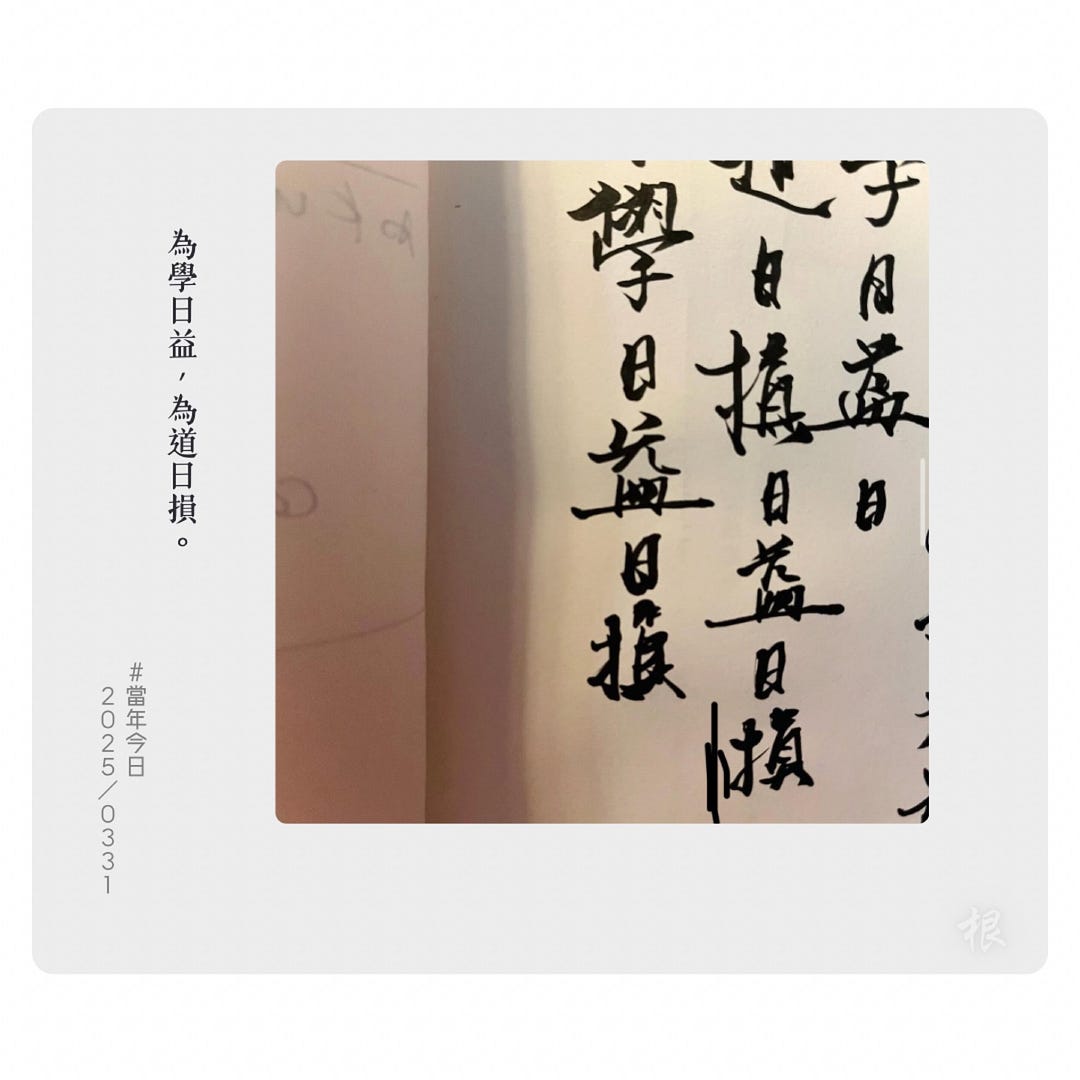 為學日益，為道日損。
#當年今日
2025/0331
學月益日
道日損日益日損
學日益日損
根